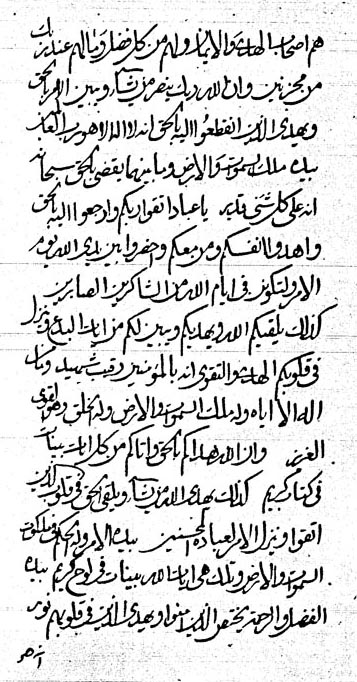 هم اصحاب الهدى والايمان ولهم من كل فضل وما لهم عند ربك
من محزنين وان الله ربك ينصر من يشآء وبين الامر بالحق
ويهدي الذين انقطعوا اليه بالحق انه لا اله الا هو رب العالمين
بيده ملك السموات والارض وما بينهما يقضي بالحق سبحانه
انه على كل شئ قدير يا عباد اتقوا ربكم وارجعوا اليه بالحق
واهدوا انفسكم ومن معكم واحضروا بين يدي الله يوم
الامر ولتكونن في ايام الله من الشاكرين الصابرين
كذلك يلقيكم الله ويهديكم ويبين لكم من ايات البدع وينزل
في قلوبكم الهدى والتقوى انه بالمؤمنين رقيب شهيد وما من
اله الا اياه وله ملك السموات والارض وله الخلق وهو القوي
العزيز وان الله هداكم بالحق واتاكم من كل ايات بينات
في كتاب كريم كذلك يهدي الله من يشآء ويلقي الحق في قلوب الذين
اتقوا وينزل الامر لعباده المحسنين بيده الامر وله الحكم في ملكوت
السموات والارض وتلك هي ايات الله بينات في لوح كريم بيده
الفضل والرحمة يختص الذين امنوا ويهدي الذين في قلوبهم نور